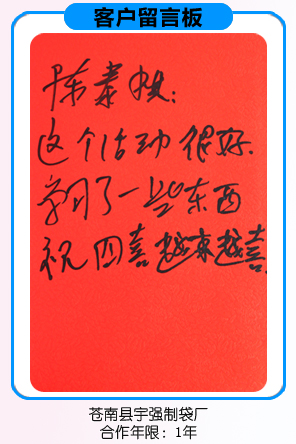 客户留言板
这个活动很好.
学习了一些东西
祝四喜越来越喜.
苍南县宇强制袋厂
合作年限：1年